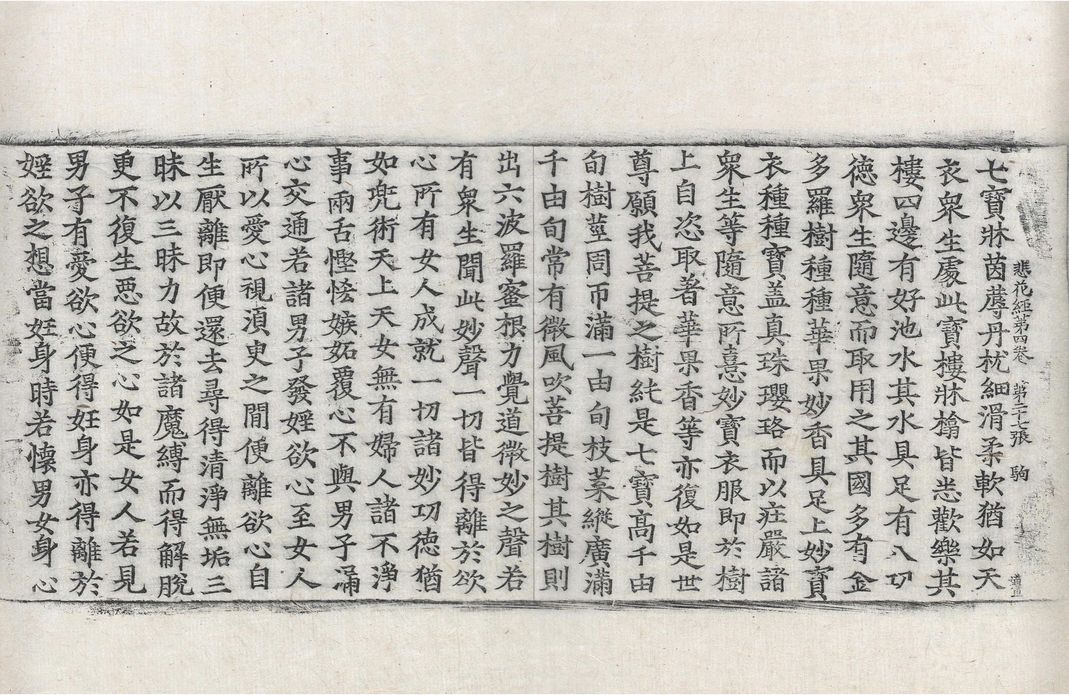 悲花經第四卷 第二十七張 駒
七寶牀茵蓐丹枕細滑柔軟猶如天
衣衆生處此寶樓牀榻皆悉歡樂其
樓四邊有好池水其水具足有八功
德衆生隨意而取用之其國多有金
多羅樹種種華果妙香具足上妙寶
衣種種寶盖真珠瓔珞而以莊嚴諸
衆生等隨意所憙妙寶衣服即於樹
上自恣取著華果香等亦復如是世
尊願我菩提之樹純是七寶高千由
旬樹莖周帀滿一由旬枝葉縱廣滿
千由旬常有微風吹菩提樹其樹則
出六波羅蜜根力覺道微妙之聲若
有衆生聞此妙聲一切皆得離於欲
心所有女人成就一切諸妙功德猶
如兜術天上天女無有婦人諸不淨
事兩舌慳悋嫉妬覆心不與男子漏
心交通若諸男子發婬欲心至女人
所以愛心視湏臾之閒便離欲心自
生厭離即便還去尋得清淨無垢三
昧以三昧力故於諸魔縛而得解脫
更不復生惡欲之心如是女人若見
男子有愛欲心便得妊身亦得離於
婬欲之想當妊身時若懷男女身心